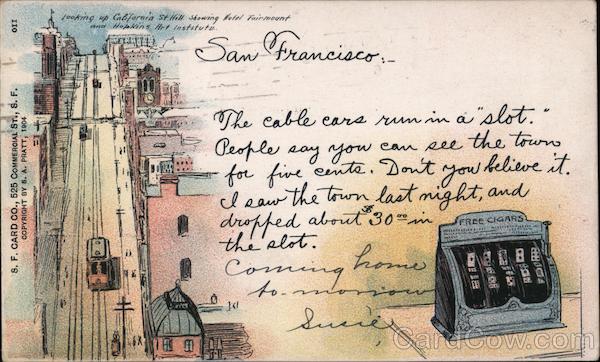 Looking up California St Hill Showing Hotel Fairmount
and Hopkins Art Institute.
011
S. F. CARD CO., 525 COMMERCIAL ST., S. F.
COPYRIGHT BY S. A. PRATT, 1904
San Francisco:-
The cable cars run in a "slot."
People say you can see the town
for five cents. Don't you believe it.
I saw the town last night, and
dropped about $30 00 in
the slot.
FREE CIGARS
Coming home
to-morrow
Susie,
CardCow.com